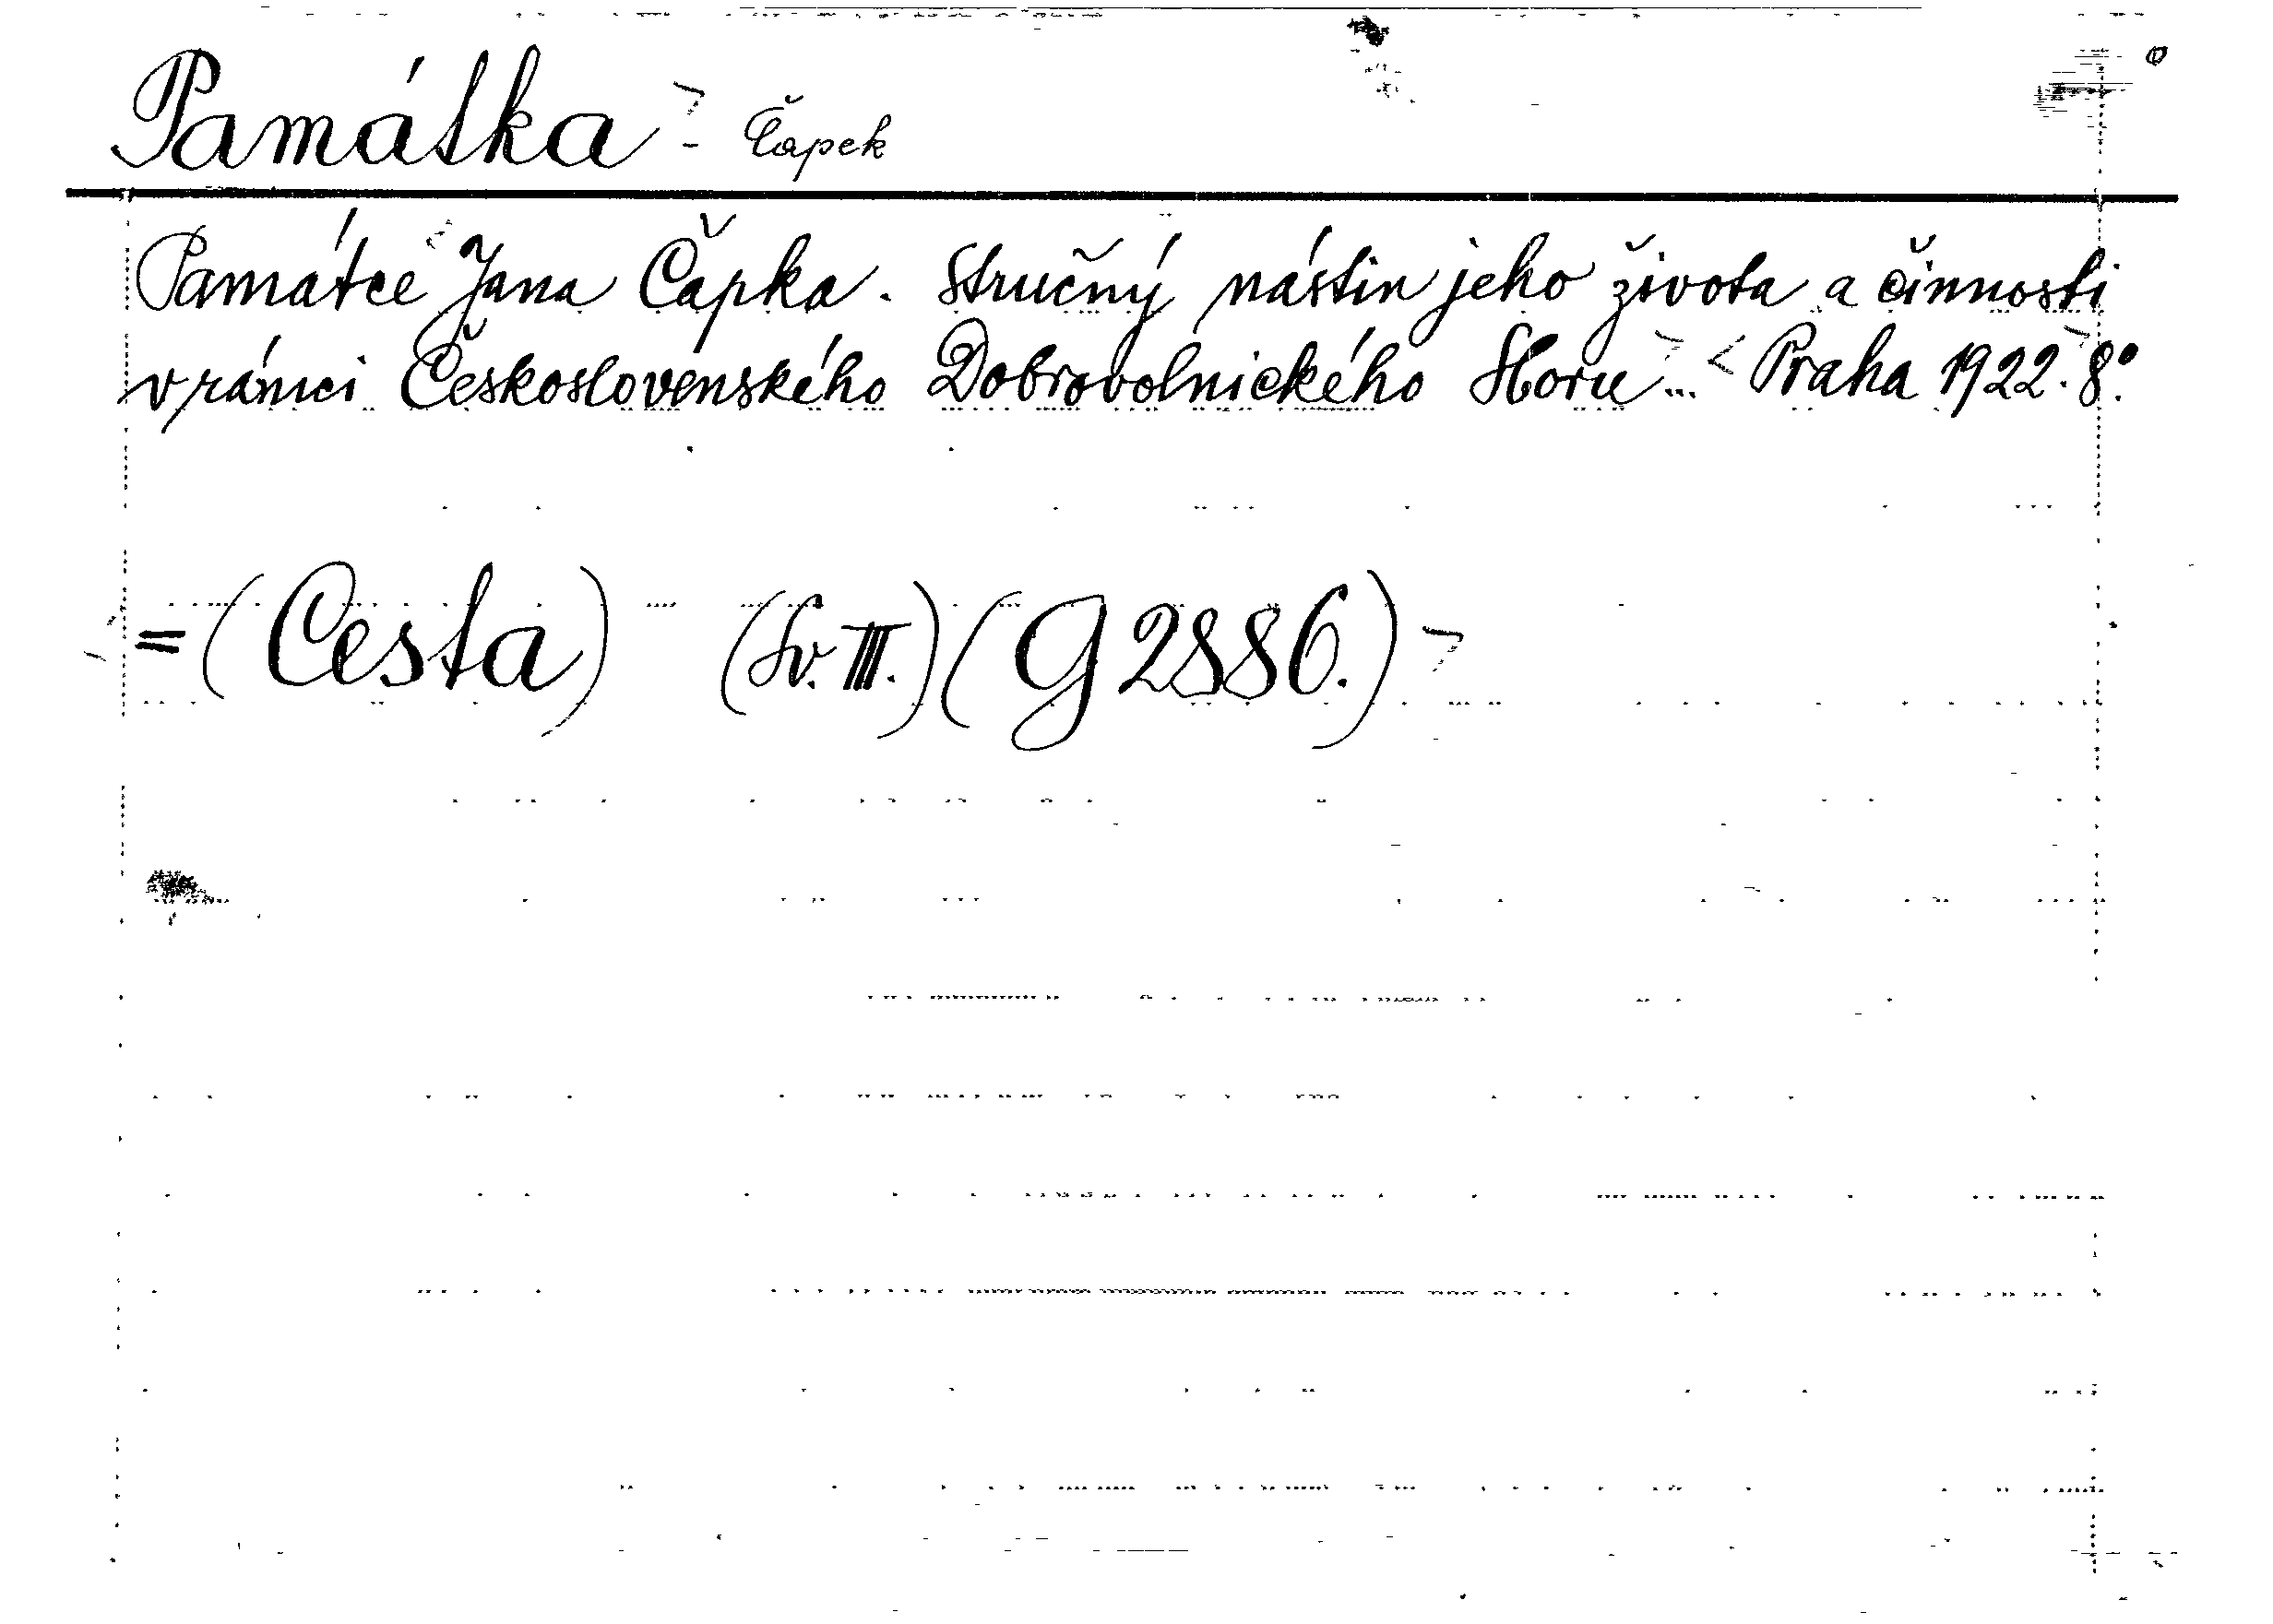 Památka - Čapek
Památce Jana Čapka. Stručný nástin jeho života a činnosti
v rámci Československého Dobrovolnického Sboru... Praha 1922. 8°.
=(Cesta) (Sv. III.) (G 2886.)